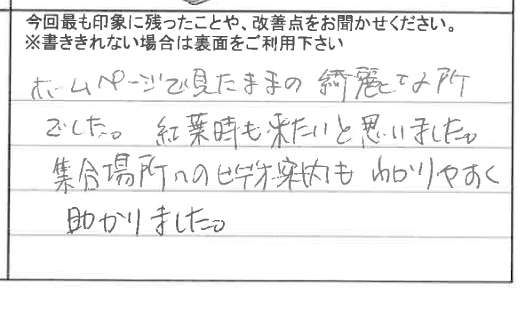 今回最も印象に残ったことや、改善点をお聞かせください。
※書ききれない場合は裏面をご利用下さい
ホームページで見たままの 綺麗な所
でした。 紅葉時も来たいと思いました。
集合場所へのビデオ案内も わかりやすく
助かりました。